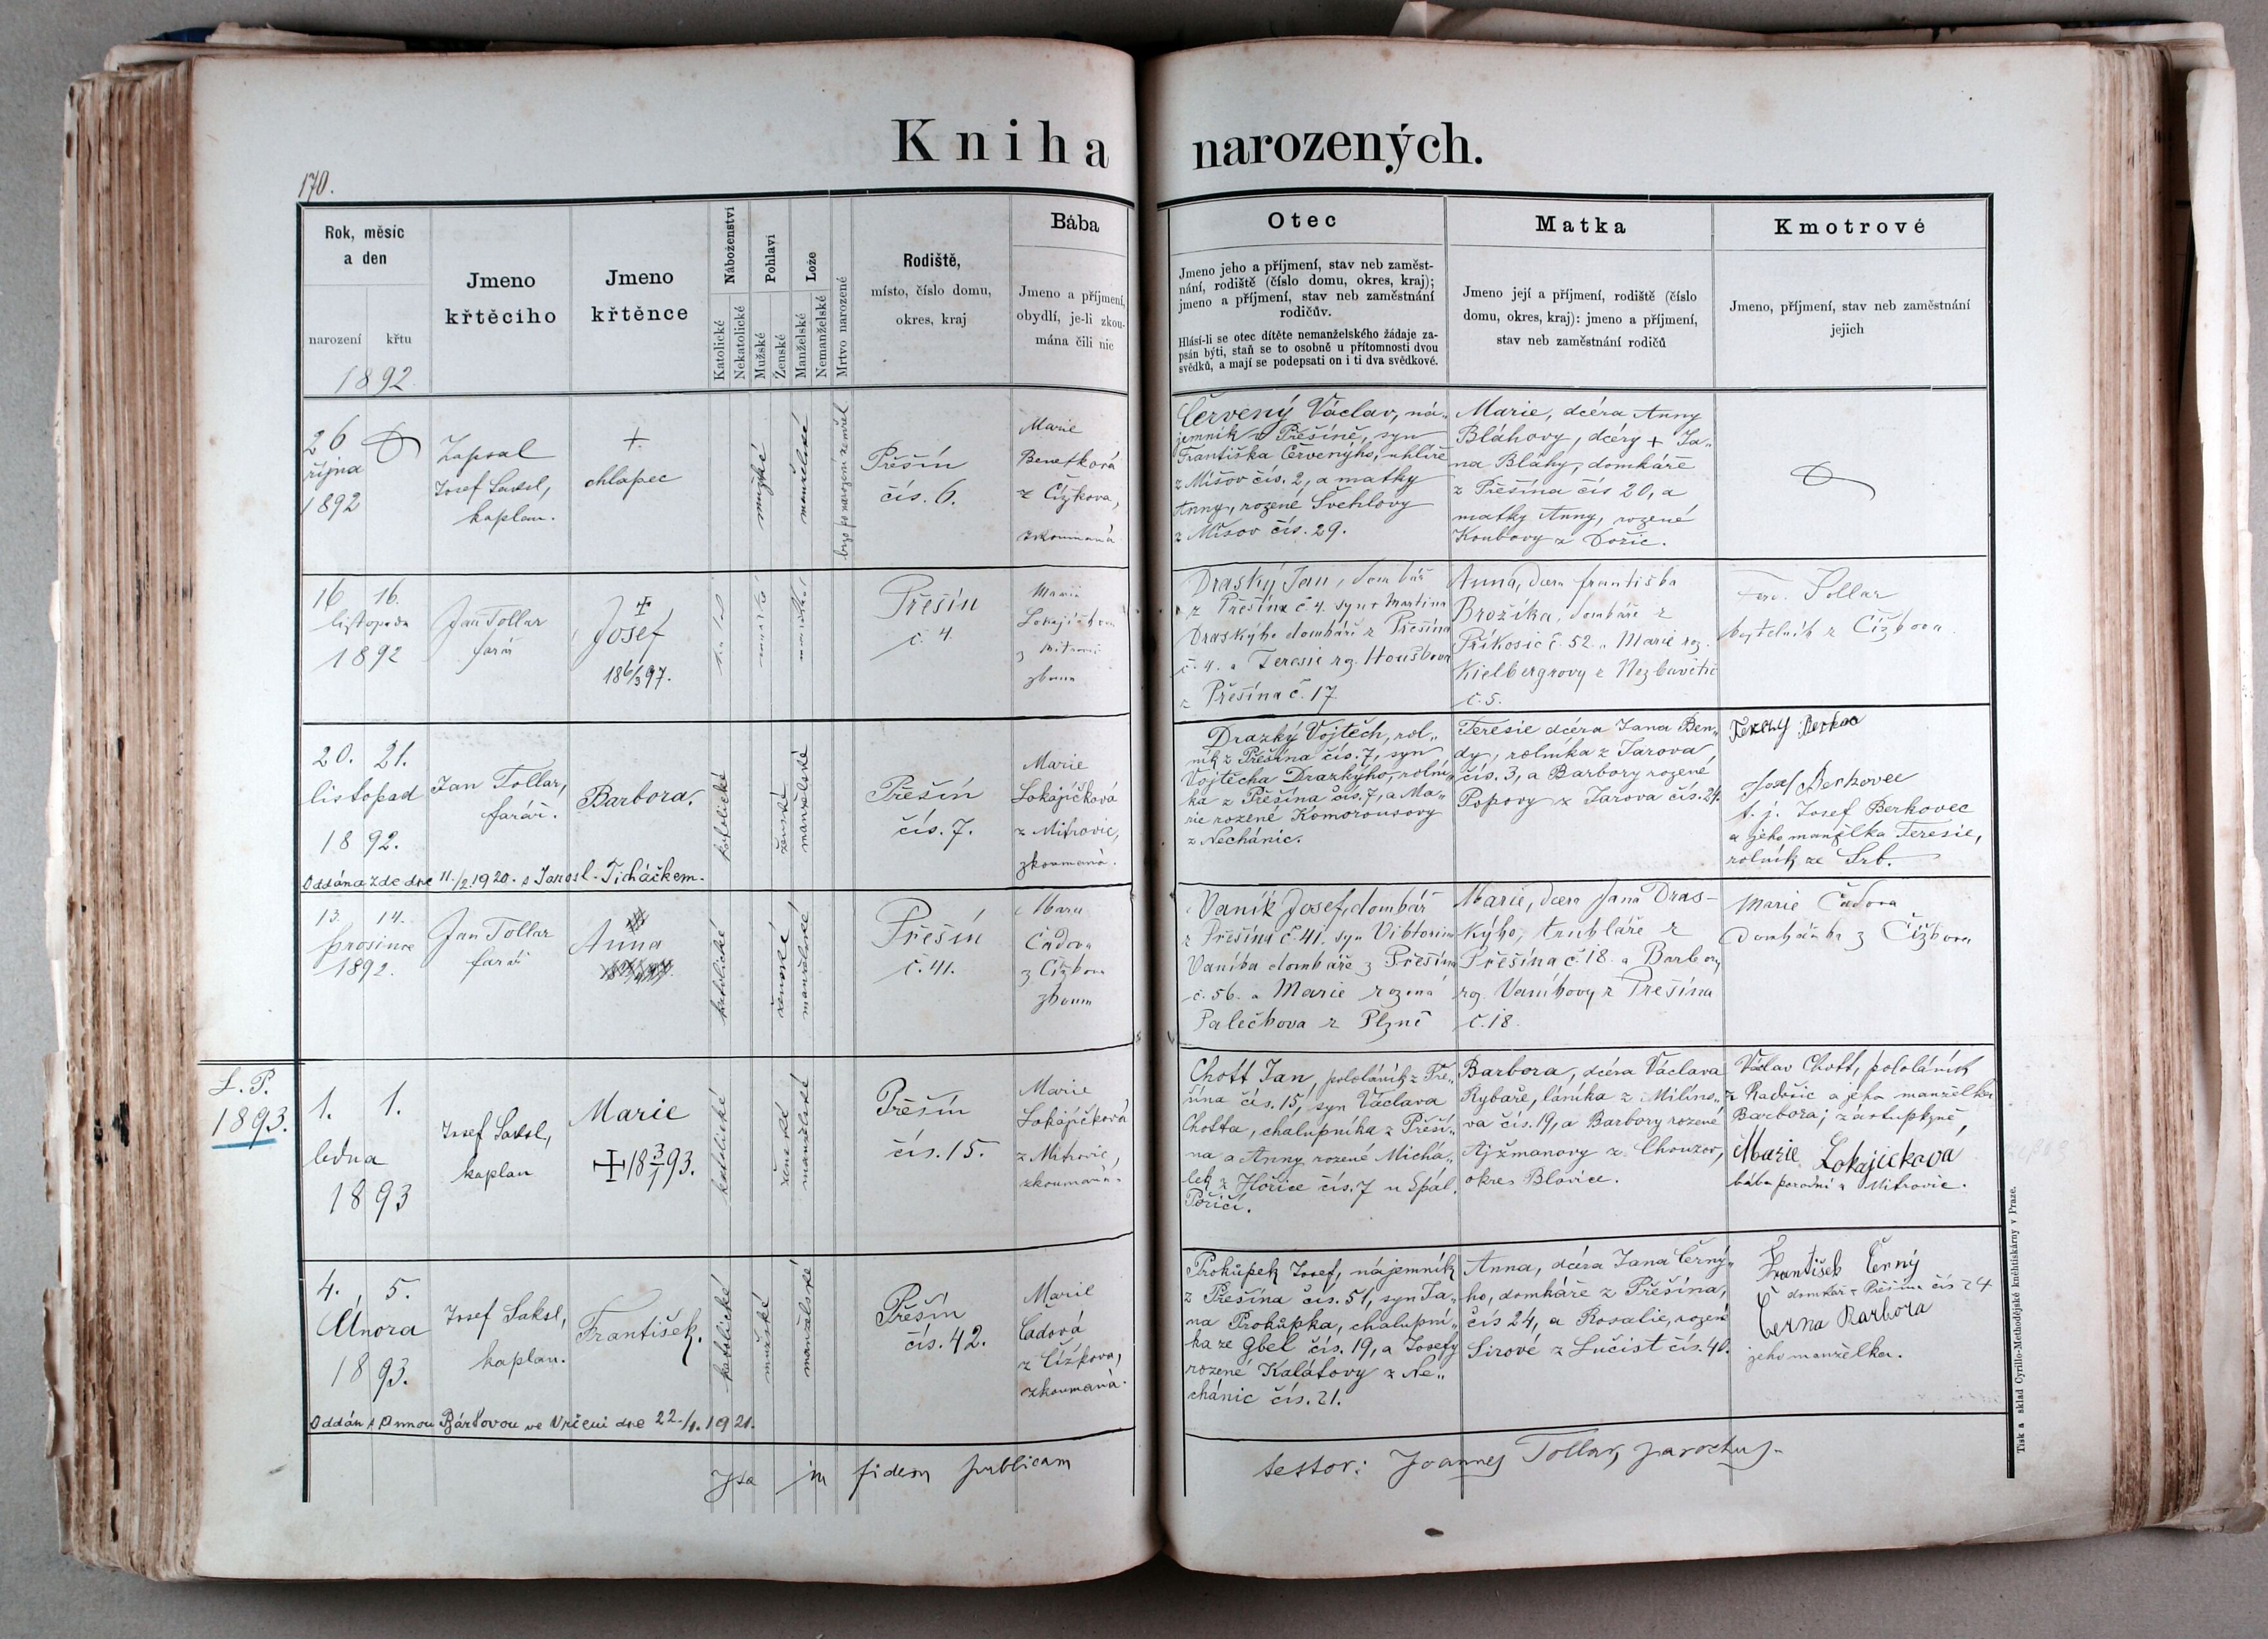 Kniha narozených.
170.
Rok, měsíc
a den
narození křtu
1892
Jmeno
křtěcího
Jmeno
křtěnce
Náboženství
Katolické
Nekatolické
Pohlaví
Mužské
Ženské
Lože
Manželské
Nemanželské
Mrtvo narozené
Rodiště,
místo, číslo domu,
okres, kraj
Bába
Jmeno a příjmení,
obydlí, je-li zkou-
mána čili nic
Otec
Jmeno jeho a příjmení, stav neb zaměst-
nání, rodiště (číslo domu, okres, kraj);
jmeno a příjmení, stav neb zaměstnání
rodičův.
Hlásí-li se otec dítěte nemanželského žádaje za-
psán býti, staň se to osobně u přítomnosti dvou
svědků, a mají se podepsati on i ti dva svědkové.
Matka
Jmeno její a příjmení, rodiště (číslo
domu, okres, kraj): jmeno a příjmení,
stav neb zaměstnání rodičů
Kmotrové
Jmeno, příjmení, stav neb zaměstnání
jejich
26
října
1892
Zapsal
Josef Saksl,
kaplan.
+
chlapec
mužské
manželské
brzo po narození zemřel
Přešín
čís. 6.
Marie
Benetková
z Čížkova,
zkoumaná
Červený Václav, ná-
jemník v Přešíně, syn
Františka Červenýho, uhlíře
z Míšov čís. 2, a matky
Anny, rozené Švehlovy
z Míšov čís. 29.
Marie, dcéra Anny
Bláhovy, dcéry + Ja-
na Bláhy, domkáře
z Přešína čís 20, a
matky Anny, rozené
Koubovy z Dožic.
16 16.
listopadu
1892
Jan Tollar
farář
+
Josef
18 6/3 97.
Přešín
č. 4.
Marie
Lokajíčkova
z Mitrovic
zkoum
Draský Jan, domkář
z Přešína č 4. syn + Martina
Draskýho domkáře z Přešína
č. 4. a Teresie rz. Houškova
z Přešína č. 17.
Anna, dcera Františka
Brožíka, domkáře z
Příkosic č. 52. a Marie roz.
Kielbergrovy z Nezbavětic
č. 5.
Ferd. Tollar
z Čížkova
20. 21.
listopad
1892.
Jan Tollar,
farář.
Barbora.
katolické
ženské
manželské
Přešín
čís. 7.
Marie
Lokajíčková
z Mitrovic,
zkoumaná.
Drazký Vojtěch, rol-
ník z Přešína čís. 7, syn
Vojtěcha Drazkýho, rolní-
ka z Přešína čís. 7, a Ma-
rie rozené Komorousovy
z Nechánic.
Teresie dcéra Jana Ben-
dy, rolníka z Jarova
čís. 3, a Barbory rozené
Popovy z Jarova čís. 24.
Josef Berkovec
t. j. Josef Berkovec
a jeho manželka Teresie,
rolník ze Srb.
Oddána zde dne 11./2. 1920. s Jarosl. Ticháčkem.
13. 14.
prosince
1892.
Jan Tollar
farář
Anna
katolické
ženské
manželské
Přešín
č. 41.
Marie
Čadova
z Čížkova
zkoum
Vaník Josef, domkář
z Přešína č. 41. syn Viktorina
Vaníka domkáře z Přešína
č. 56. a Marie rozená
Palečkova z Plzně
Marie, dcera Jana Dras-
kýho, truhláře z
Přešína č. 18. a Barbory
rz. Vaníkovy z Přešína
č. 18.
Marie Čadova
domkářka z Čížkova
L. P.
1893.
1. 1.
ledna
1893
Josef Saksl,
kaplan
Marie
+ 18 3/1 93.
katolické
ženské
manželské
Přešín
čís. 15.
Marie
Lokajíčková
z Mitrovic,
zkoumaná.
Chott Jan, pololáník z Pře-
šína čís. 15, syn Václava
Chotta, chalupníka z Přeší-
na a Anny rozené Michá-
lek z Hořice čís. 7 u Spál.
Poříčí.
Barbora, dcéra Václava
Rybáře, láníka z Milíno-
va čís. 19, a Barbory rozené
Ajžmanovy z Chouzov,
okres Blovice.
Václav Chott, pololáník
z Radošic a jeho manželka
Barbora; zástupkyně,
Marie Lokajickova
bába porodní z Mitrovic.
4. 5.
Února
1893.
Josef Saksl,
kaplan.
František.
katolické
mužské
manželské
Přešín
čís. 42.
Marie
Čadová
z Čížkova,
zkoumaná.
Prokůpek Josef, nájemník
z Přešína čís. 51, syn Ja-
na Prokůpka, chalupní-
ka ze Gbel čís. 19, a Josefy
rozené Kalátovy z Ne-
chánic čís. 21.
Anna, dcéra Jana Černý-
ho, domkáře z Přešína,
čís 24, a Rosalie, rozené
Sirové z Lučist čís. 40.
František Černý
domkář z Přešína čís 24
Černa Barbora
jeho manželka.
Oddán s Annou Bártovou ve Vrčeni dne 22./1. 1921.
Ita in fidem publicam
testor: Joannes Tollar, parochus.
Tisk a sklad Cyrillo-Methodějské knihtiskárny v Praze.